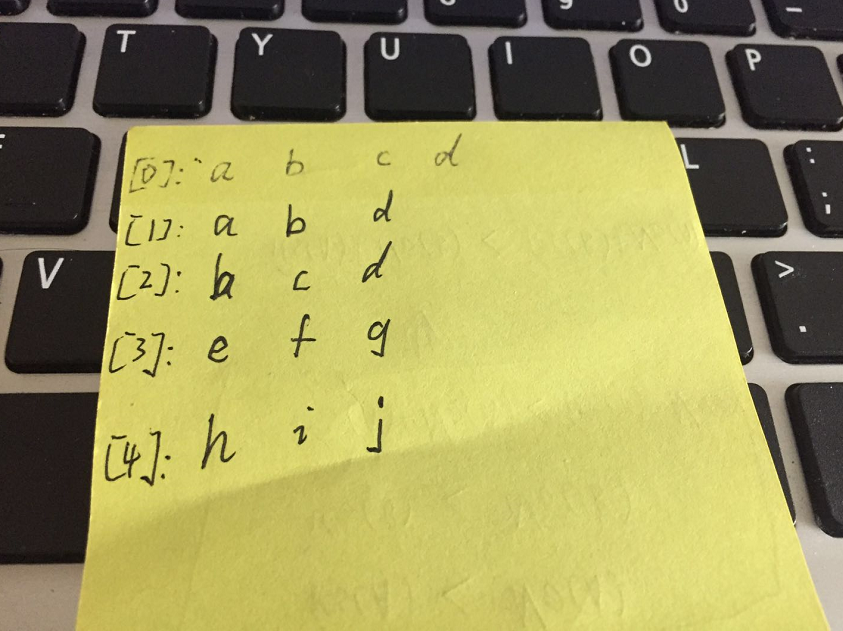 T Y U I O P
[0]: a b c d
L : ;
[1]: a b d
[2]: b c d
V > .
[3]: e f g
[4]: h i j